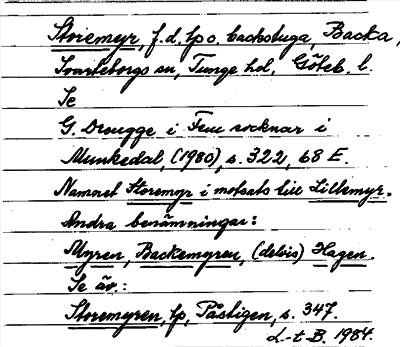 Storemyr, f.d. lp o. backstuga, Backa,
Svarteborgs sn, Tunge hd, Göteb. l.
Se
G. Drougge i Fem socknar i
Munkedal, (1980), s. 322, 68 E.
Namnet Storemyr i motsats till Lillemyr.
Andra benämningar:
Myren, Backemyren, (delvis) Hagen.
Se äv.:
Storemyren, lp, Påstigen, s. 347.
L-t B. 1984.